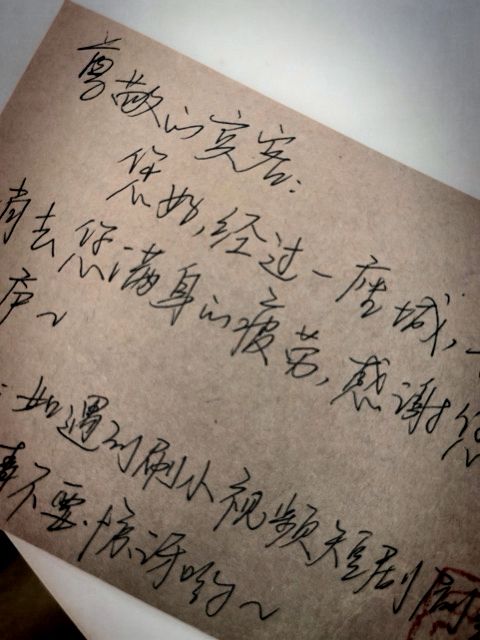 尊敬的宾客:
您好,经过一座城,
消去您满身的疲劳,感谢您
庐~
如遇到刷小视频短剧
请不要惊讶哟~